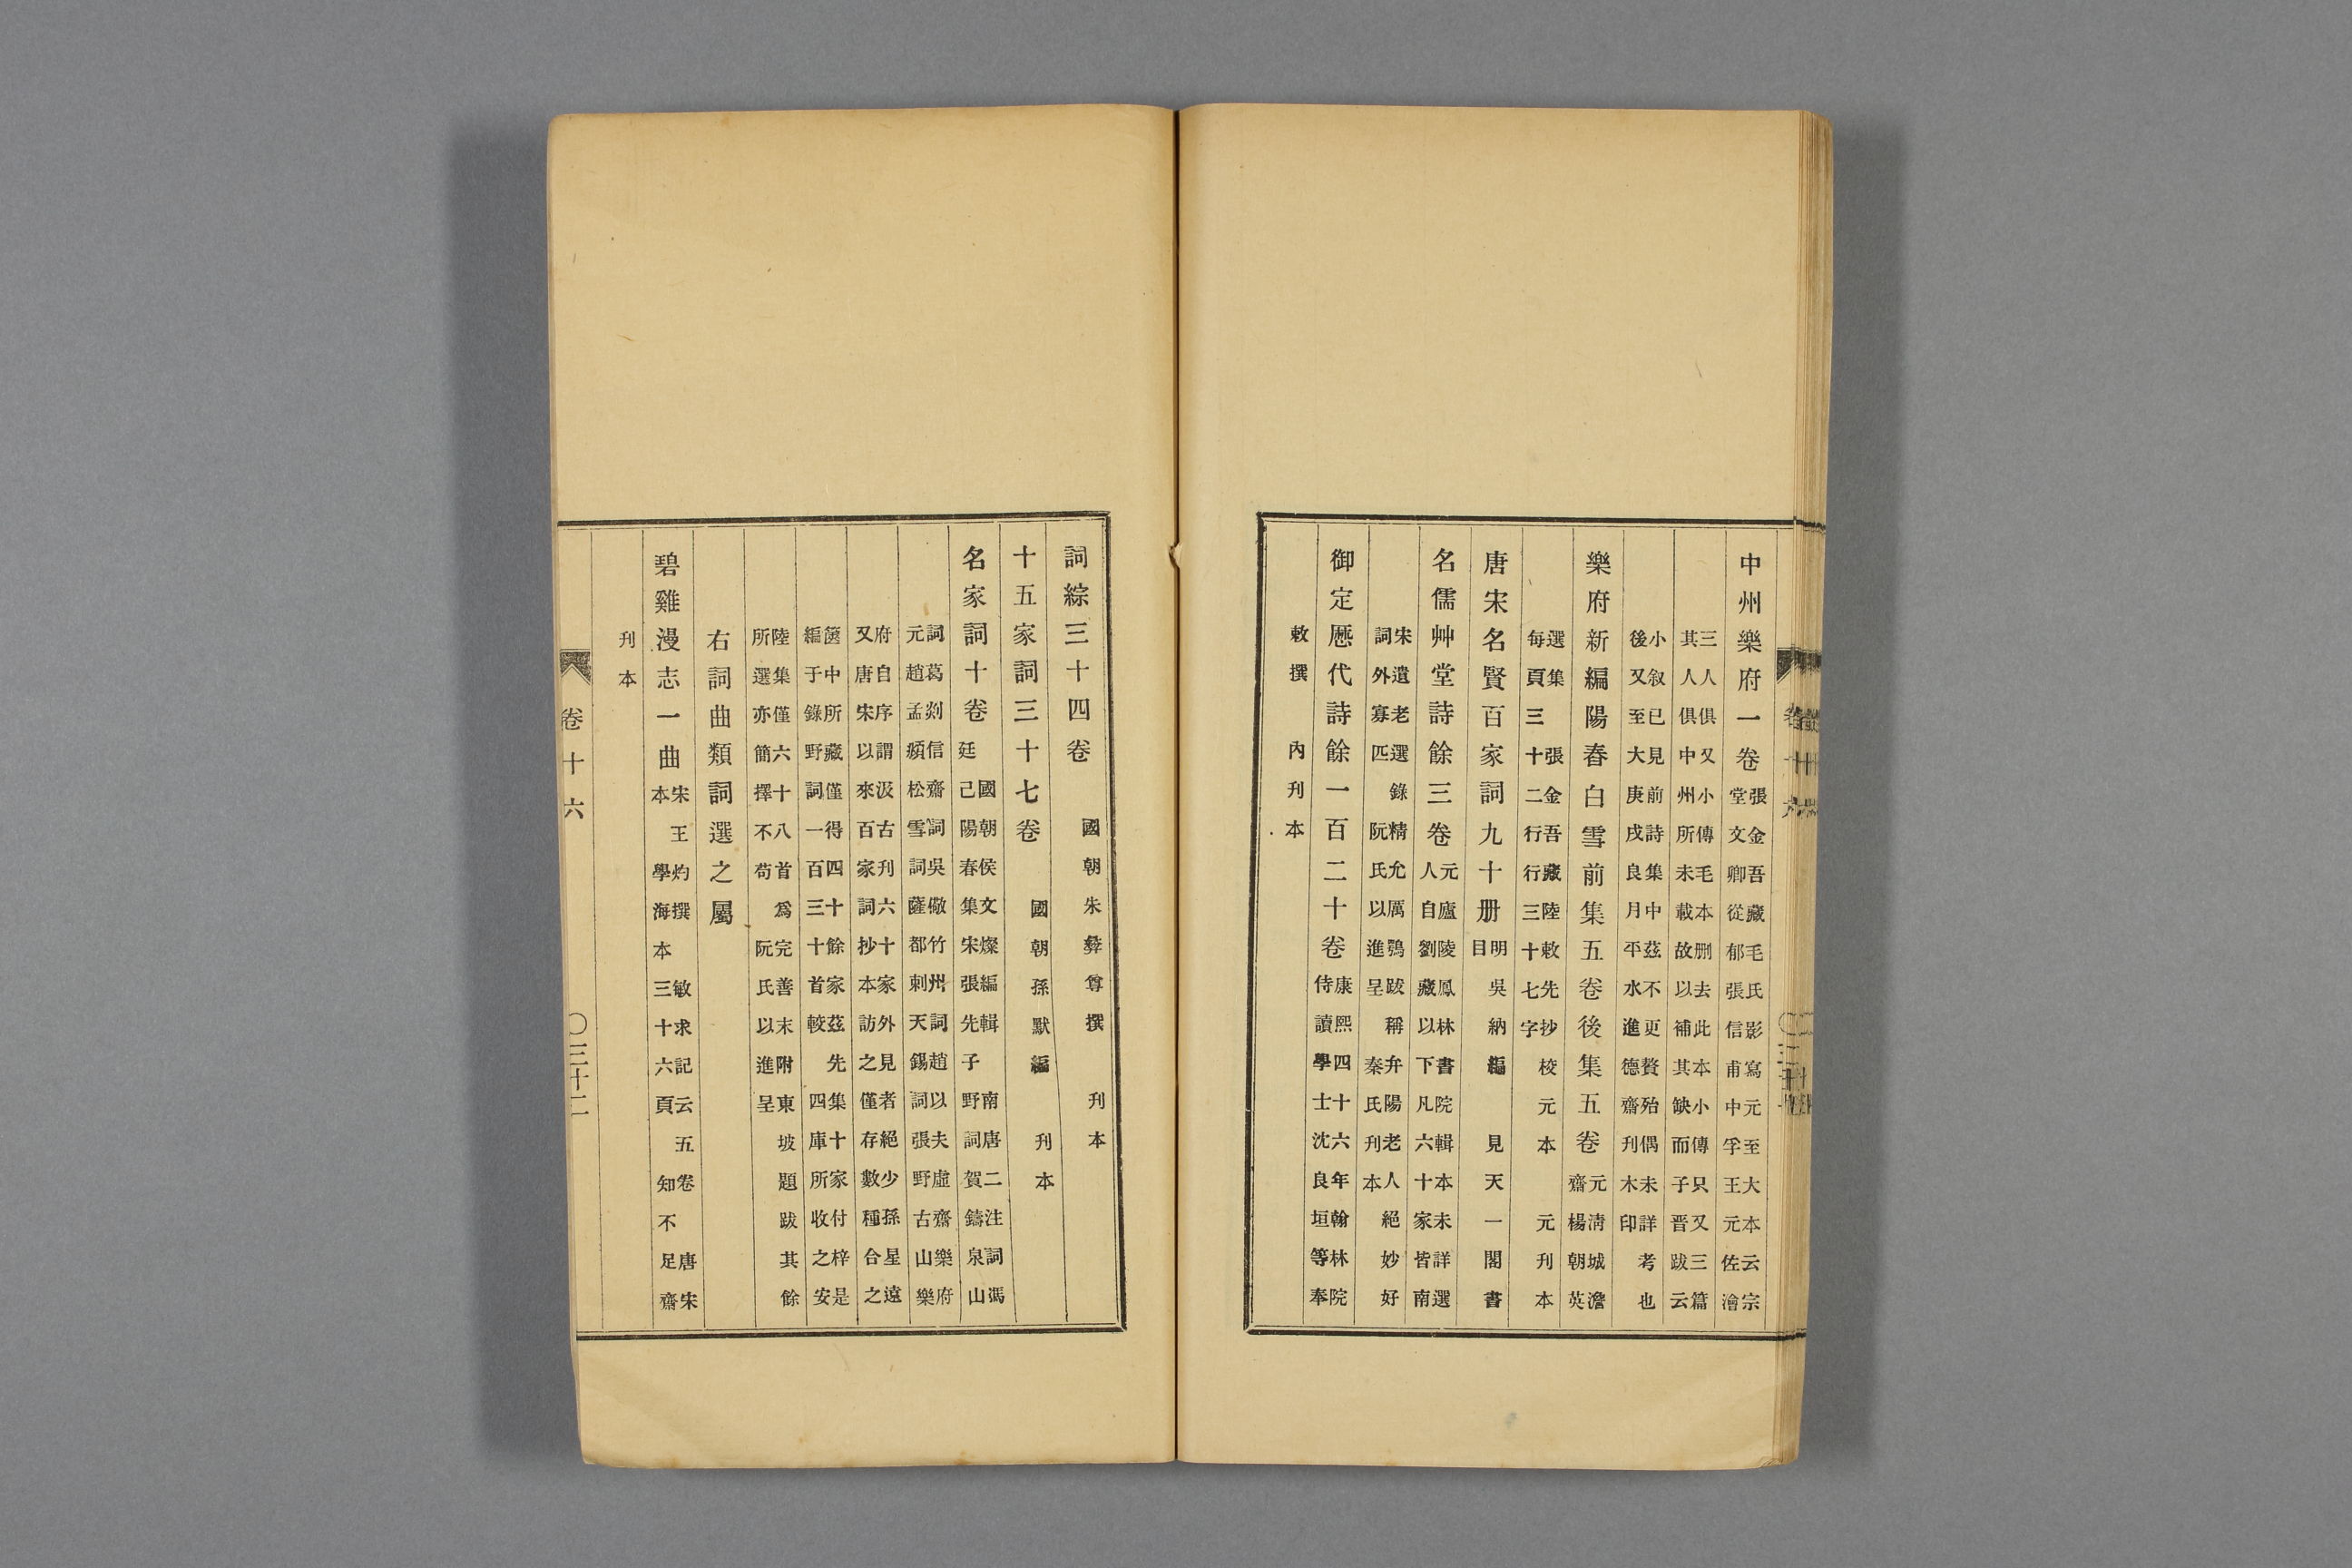 中州樂府一卷
張金吾藏毛氏影寫元至大本云宗
堂文卿從郁張信甫中孚王元佐澮
三人俱又小傳毛本删去此本小傳只又三篇
其人俱中州所未載故以補其缺而子晋跋云
小叙已見前詩集中茲不更贅殆偶未詳考也
後又至大庚戌良月平水進德齋刊木印
樂府新編陽春白雪前集五卷後集五卷
元淸城澹
齋楊朝英
選集 張金吾藏陸敕先抄校元本 元刊本
每頁三十二行行三十七字
唐宋名賢百家詞九十册
明吳納編 見天一閣書
目
名儒艸堂詩餘三卷
元廬陵鳳林書院輯本未詳選
人自劉藏以下凡六十家皆南
宋遺老選錄精允厲鶚跋稱弁陽老人絕妙好
詞外寡匹 阮氏以進呈 秦氏刊本
御定歷代詩餘一百二十卷
康熙四十六年翰林院
侍讀學士沈良垣等奉
敕撰 內刊本
詞綜三十四卷 國朝朱彝尊撰 刊本
十五家詞三十七卷 國朝孫默編 刊本
名家詞十卷
國朝侯文燦編輯 南唐二注詞馮
廷己陽春集宋張先子野詞賀鑄泉山
詞葛剡信齋詞吳儆竹州詞趙以夫虛齋樂府
元趙孟頫松雪詞薩都剌天錫詞張野古山樂
府自序謂汲古刊六十家外見者絕少孫星遠
又唐宋以來百家詞抄本訪之僅存數種合之
篋中所藏僅得四十餘家茲先集十家付梓是
編于錄野詞一百三十首較四庫所收之安
陸集僅六十八首爲完善末附東坡題跋其餘
所選亦簡擇不苟 阮氏以進呈
右詞曲類詞選之屬
碧雞漫志一曲
宋王灼撰 敏求記云五卷 唐宋
本 學海本三十六頁 知不足齋
刊本
卷十六
〇三十二